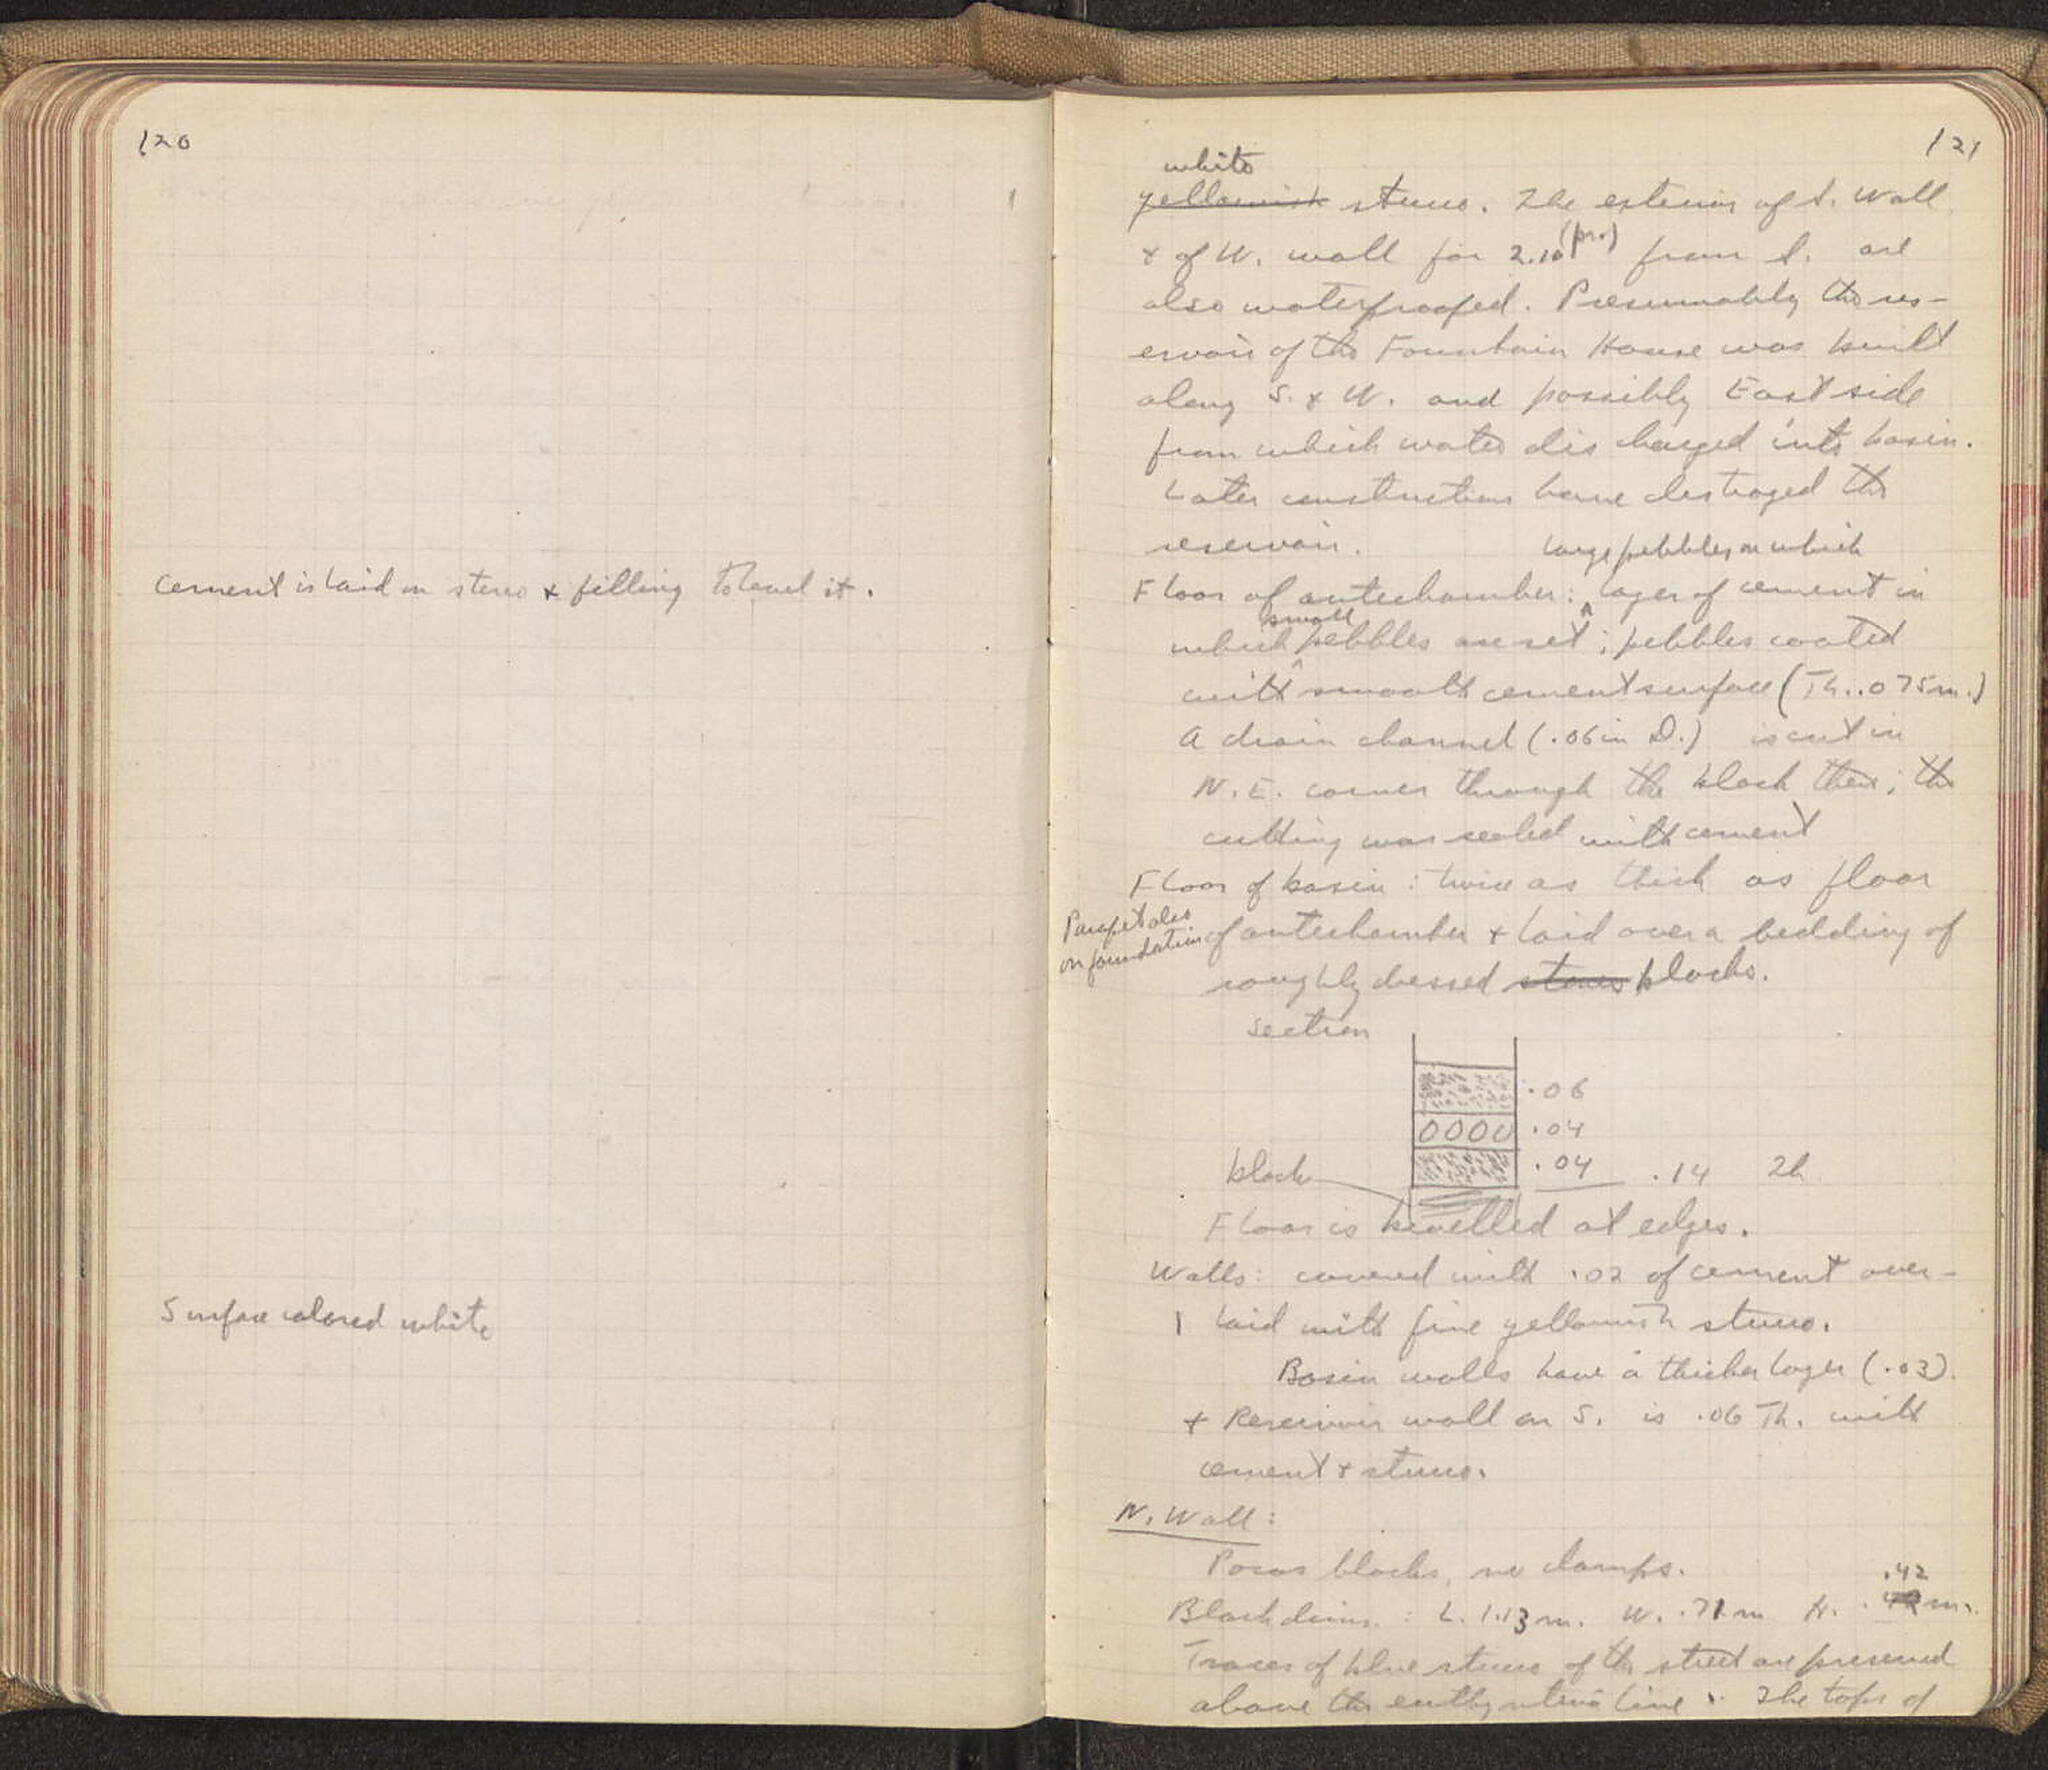 120
Cement is laid on stereo & filling to level it.
Surface colored white
121
white
yellowish stucco. The exterior of S. Wall
& of W. wall for 2.10 (pr.) from S. are
also waterproofed. Presumably the res-
ervoir of the Fountain House was built
along S. & W. and possibly East side
from which water discharged into basin.
Later constructions have destroyed the
reservoir.
large pebbles on which
Floor of antechamber: ^ layer of cement in
small
which pebbles are set; pebbles coated
with ^ smooth cement surface (Th. .075m.)
A drain channel (.06 in D.) is cut in
N.E. corner through the block there; the
cutting was sealed with cement
Floor of basin: twice as thick as floor
Parapet also
on foundation
of antechamber & laid over a bedding of
roughly dressed stones blocks.
section
.06
0000 .04
block .04 .14 Th
Floor is bevelled at edges.
Walls: covered with .02 of cement over-
laid with fine yellowish stucco.
Basin walls have a thicker layer (.03)
& Reservoir wall on S. is .06 Th. with
cement & stucco.
N. Wall:
Poros blocks, no clamps.
.42
Block dims.: L. 1.13 m. W. .71 m H. . m.
Traces of blue stucco of the street are preserved
above the euthynteria line. The tops of